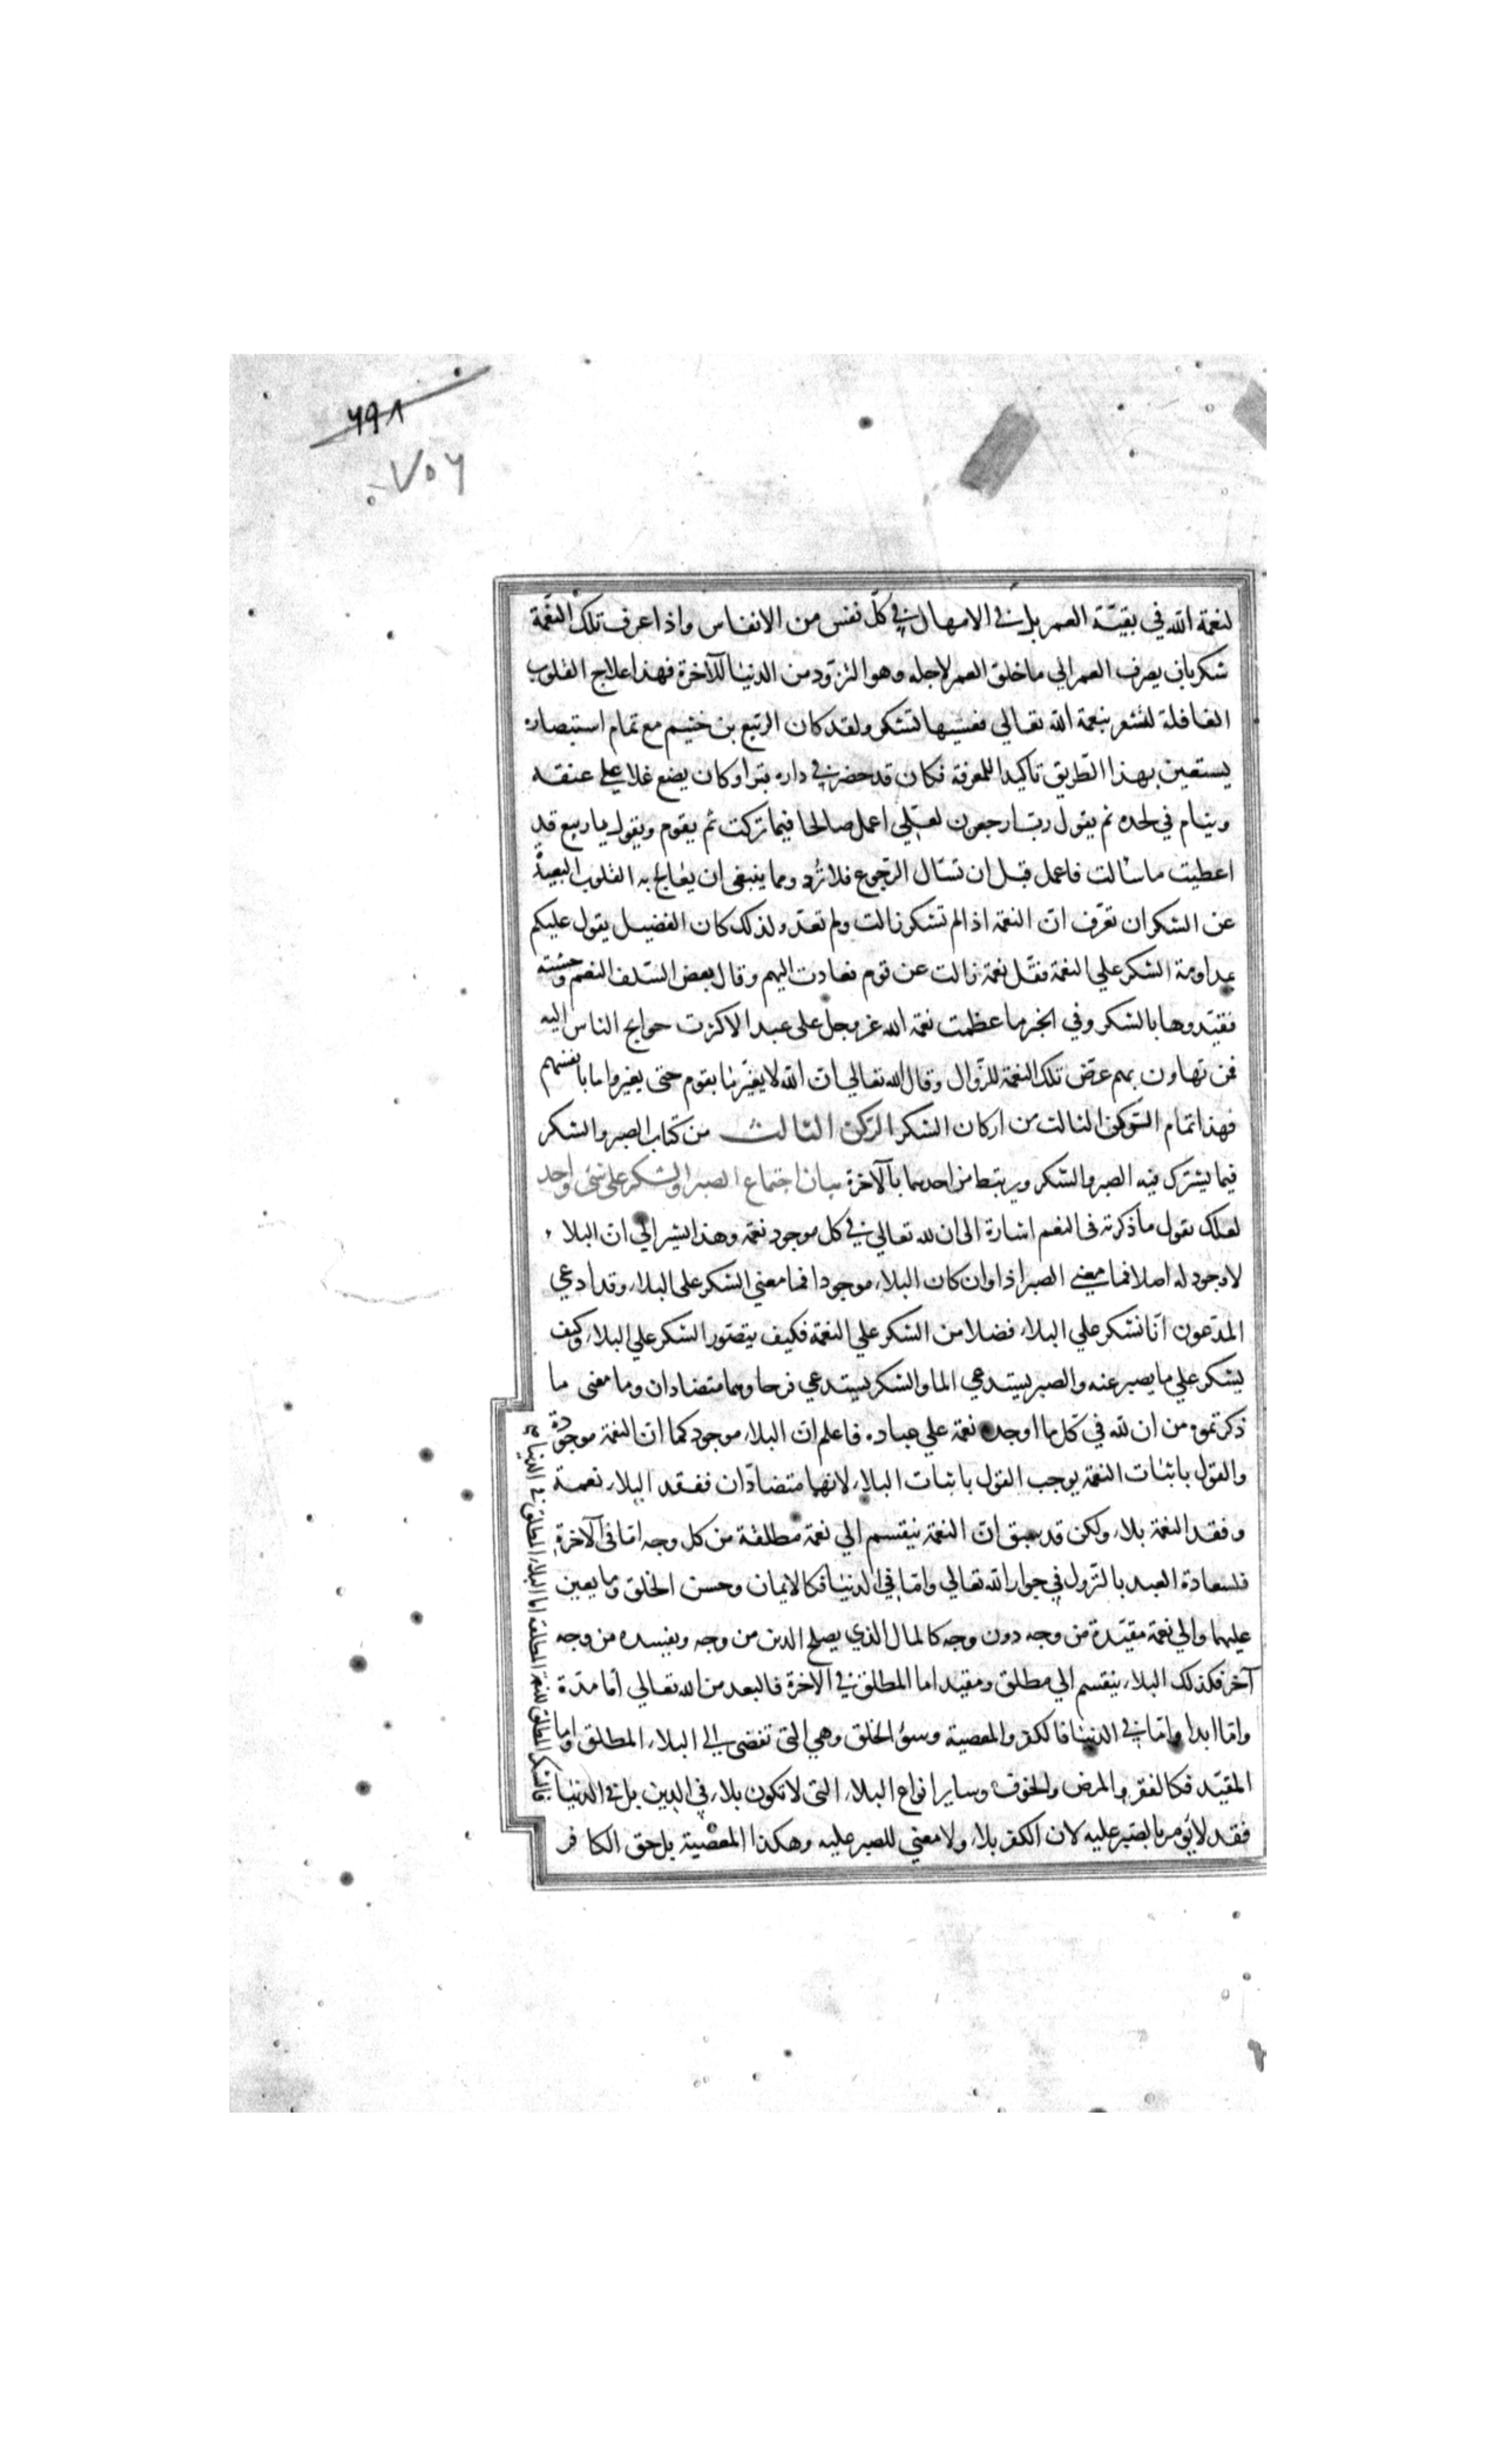 ٦٩٨
٧٥٦
لنعمة الله في بقيّة العمر بل في الامهال في كلّ نفس من الانفاس واذا عرف تلك النعّمة
شكر بان يصرف العمر الي ما خلق العمر لاجله وهو التزوّد من الدنيا للآخرة فهذا علاج القلوب
الغافلة لتشعر بنعمة الله تعالي فعسيها تشكر ولقد كان الربّيع بن خثيم مع تمام استبصاره
يستعين بهذا الطّريق تاكيدا للمعرفة فكان قد حفر في داره قبرا وكان يضع غلا علي عنقه
وينام في لحده ثم يقول ربّ ارجعون لعلّي اعمل صالحا فيما تركت ثم يقوم ويقول يا ربيع قد
اعطيت ما سالت فاعمل قبل ان تسال الرّجوع فلا تُرد ومما ينبغي ان يعالج به القلوب البعيدة
عن الشكر ان تعرّف انّ النعمة اذا لم تشكر زالت ولم تعد ولذلك كان الفضيل يقول عليكم
بمداومة الشكر علي النعمة فقلّ نعمة زالت عن قوم فعادت اليهم وقال بعض السّلف النعم وحشية
فقيّدوها بالشكر وفي الخبر ما عظمت نعمة الله عز وجل على عبد الا كثرت حوايج الناس اليه
فمن تهاون بهم عرّض تلك النعمة للزّوال وقال الله تعالي انّ الله لا يغيّر ما بقوم حتى يغيروا ما بانفسهم
فهذا تمام الركن الثالث من اركان الشكر الركن الثالث من كتاب الصبر والشكر
فيما يشترك فيه الصبر والشكر ويرتبط من احدهما بالآخرة بيان اجتماع الصبر والشكر على شئ واحد
لعلك تقول ما ذكرته في النعم اشارة الى ان لله تعالي في كل موجود نعمة وهذا يشير الي ان البلاء
لا وجود له اصلا فما معني الصبر اذا وان كان البلاء موجودا فما معني الشكر على البلاء وقد ادعي
المدّعون انّا نشكر علي البلاء فضلا من الشكر علي النعمة فكيف يتصّور الشكر علي البلاء وكيف
يشكر علي ما يصبر عنه والصبر يستدعي الما والشكر يستدعي فرحا وهما متضادان وما معنى ما
ذكرتموه من ان لله في كلّ ما اوجده نعمة علي عباده فاعلم انّ البلاء موجود كما انّ النعمة موجودة
والقول باثبات النعمة يوجب القول باثبات البلاء لانهما متضادّان ففقد البلاء نعمة
وفقد النعمة بلاء ولكن قد سبق انّ النعمة ينقسم الي نعمة مطلقة من كل وجه امّا في الآخرة
فلسعادة العبد بالنزول في جوار الله تعالي وامّا في الدنيا فكالايمان وحسن الخلق وما يعين
عليهما والي نعمة مقيّدة من وجه دون وجه كالمال الذي يصلح الدين من وجه ويفسده من وجه
آخر فكذلك البلاء ينقسم الي مطلق ومقيد اما المطلق في الآخرة فالبعد من الله تعالي امّا مدّة
وامّا ابدا وامّا في الدنيا فالكفر والمعصية وسوء الخلق وهي التي تفضي الي البلاء المطلق واما
المقيّد فكالفقر والمرض والخوف وساير انواع البلاء التي لا تكون بلاء في الدين بل في الدنيا
فالشكر المطلق للنعمة المطلقة اما البلاء المطلق في الدنيا
فقد لا يؤمر بالصّبر عليه لان الكفر بلاء ولا معني للصبر عليه وهكذا المعصية بل حق الكافر